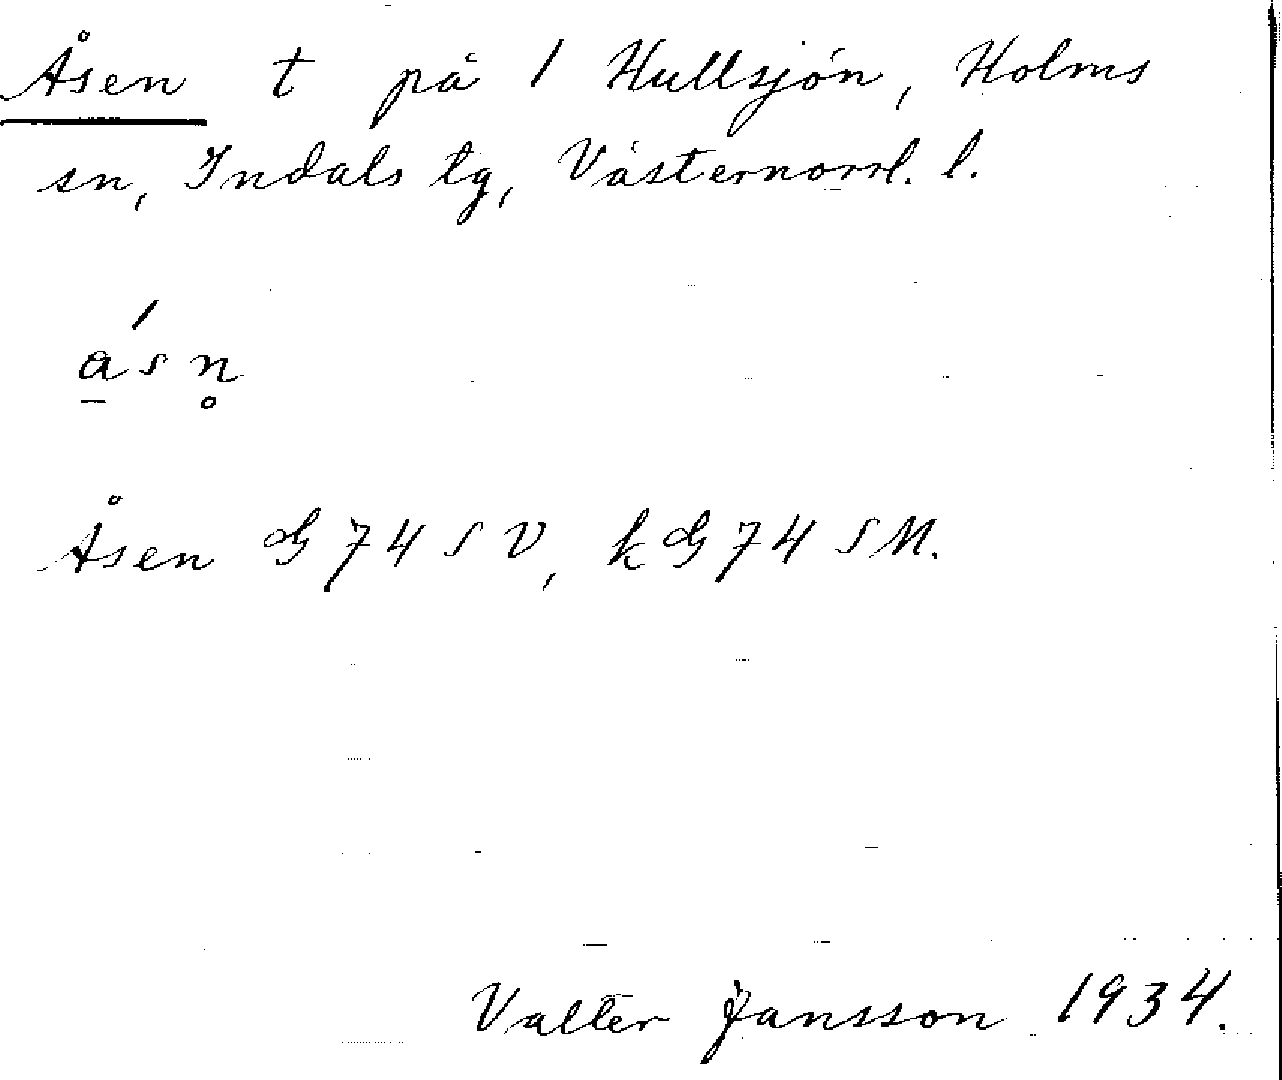 Åsen t på 1 Hullsjön, Holms
sn, Indals tg, Västernorrl. l.
a̱´sn̥
Åsen G 74 SV, kG 74 SM.
Valter Jansson 1934.